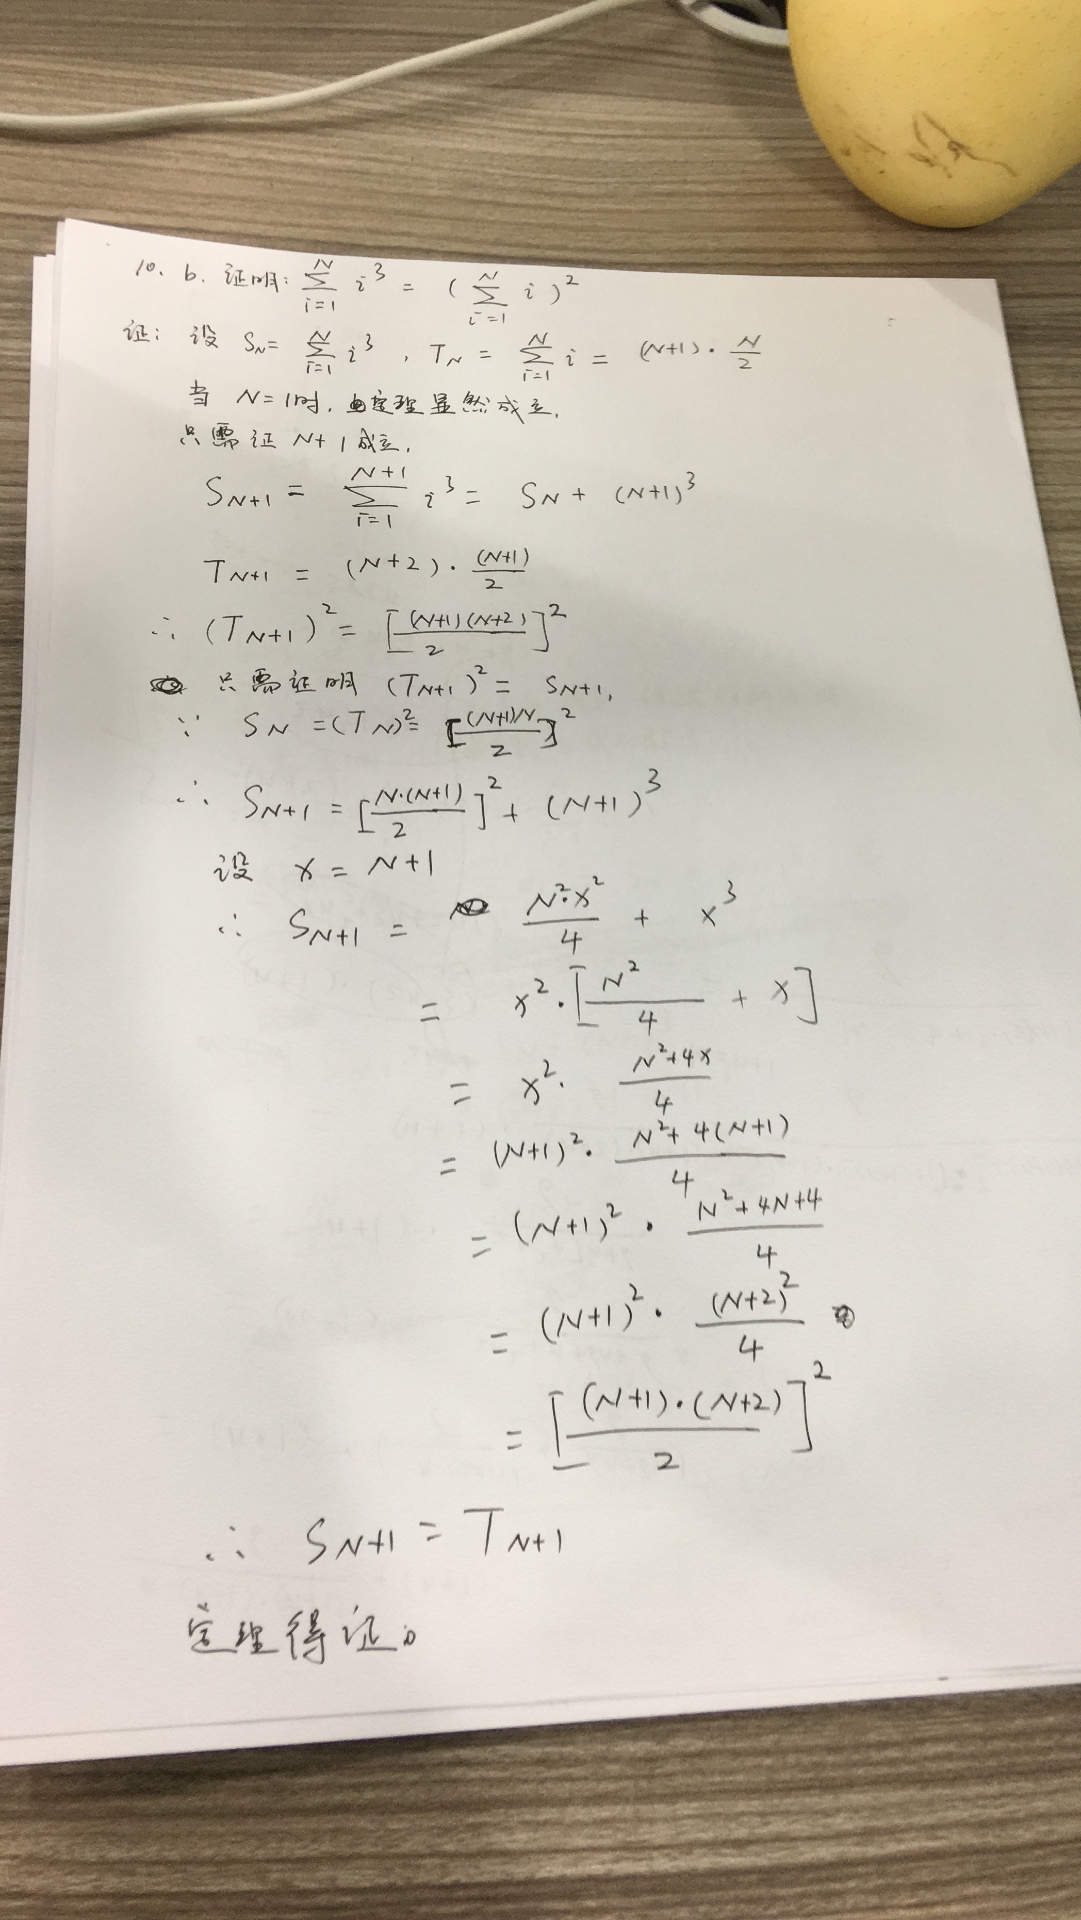 10. b. 证明: $\sum_{i=1}^{N} i^3 = (\sum_{i=1}^{N} i)^2$
证: 设 $S_N = \sum_{i=1}^{N} i^3$, $T_N = \sum_{i=1}^{N} i = (N+1) \cdot \frac{N}{2}$
当 N=1时, 定理显然成立.
只需证 N+1成立.
$S_{N+1} = \sum_{i=1}^{N+1} i^3 = S_N + (N+1)^3$
$T_{N+1} = (N+2) \cdot \frac{(N+1)}{2}$
∴ $(T_{N+1})^2 = [\frac{(N+1)(N+2)}{2}]^2$
只需证明 $(T_{N+1})^2 = S_{N+1}$.
∵ $S_N = (T_N)^2 = [\frac{(N+1)N}{2}]^2$
∴ $S_{N+1} = [\frac{N \cdot (N+1)}{2}]^2 + (N+1)^3$
设 x = N+1
∴ $S_{N+1} = \frac{N^2 \cdot x^2}{4} + x^3$
$= x^2 \cdot [\frac{N^2}{4} + x]$
$= x^2 \cdot \frac{N^2+4x}{4}$
$= (N+1)^2 \cdot \frac{N^2+4(N+1)}{4}$
$= (N+1)^2 \cdot \frac{N^2+4N+4}{4}$
$= (N+1)^2 \cdot \frac{(N+2)^2}{4}$
$= [\frac{(N+1) \cdot (N+2)}{2}]^2$
∴ $S_{N+1} = T_{N+1}$
定理得证。